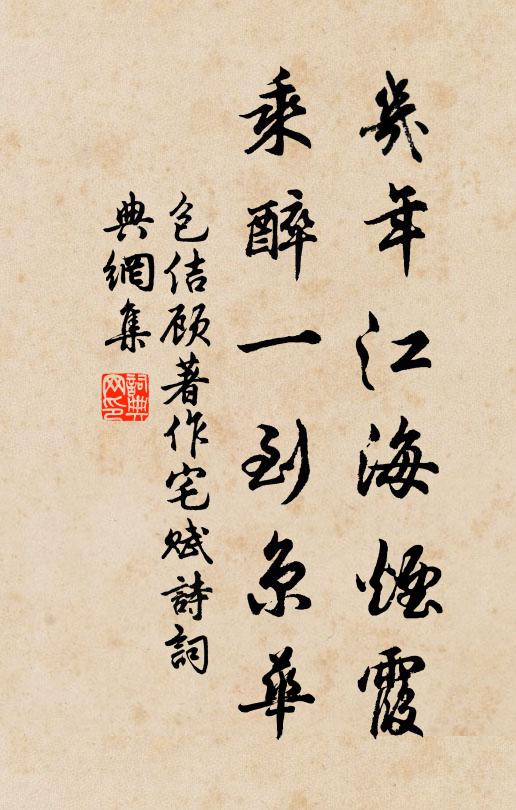 幾年江海煙霞
乘醉一到京華
包佶顾著作宅赋詩詞
典網集
詞典網印